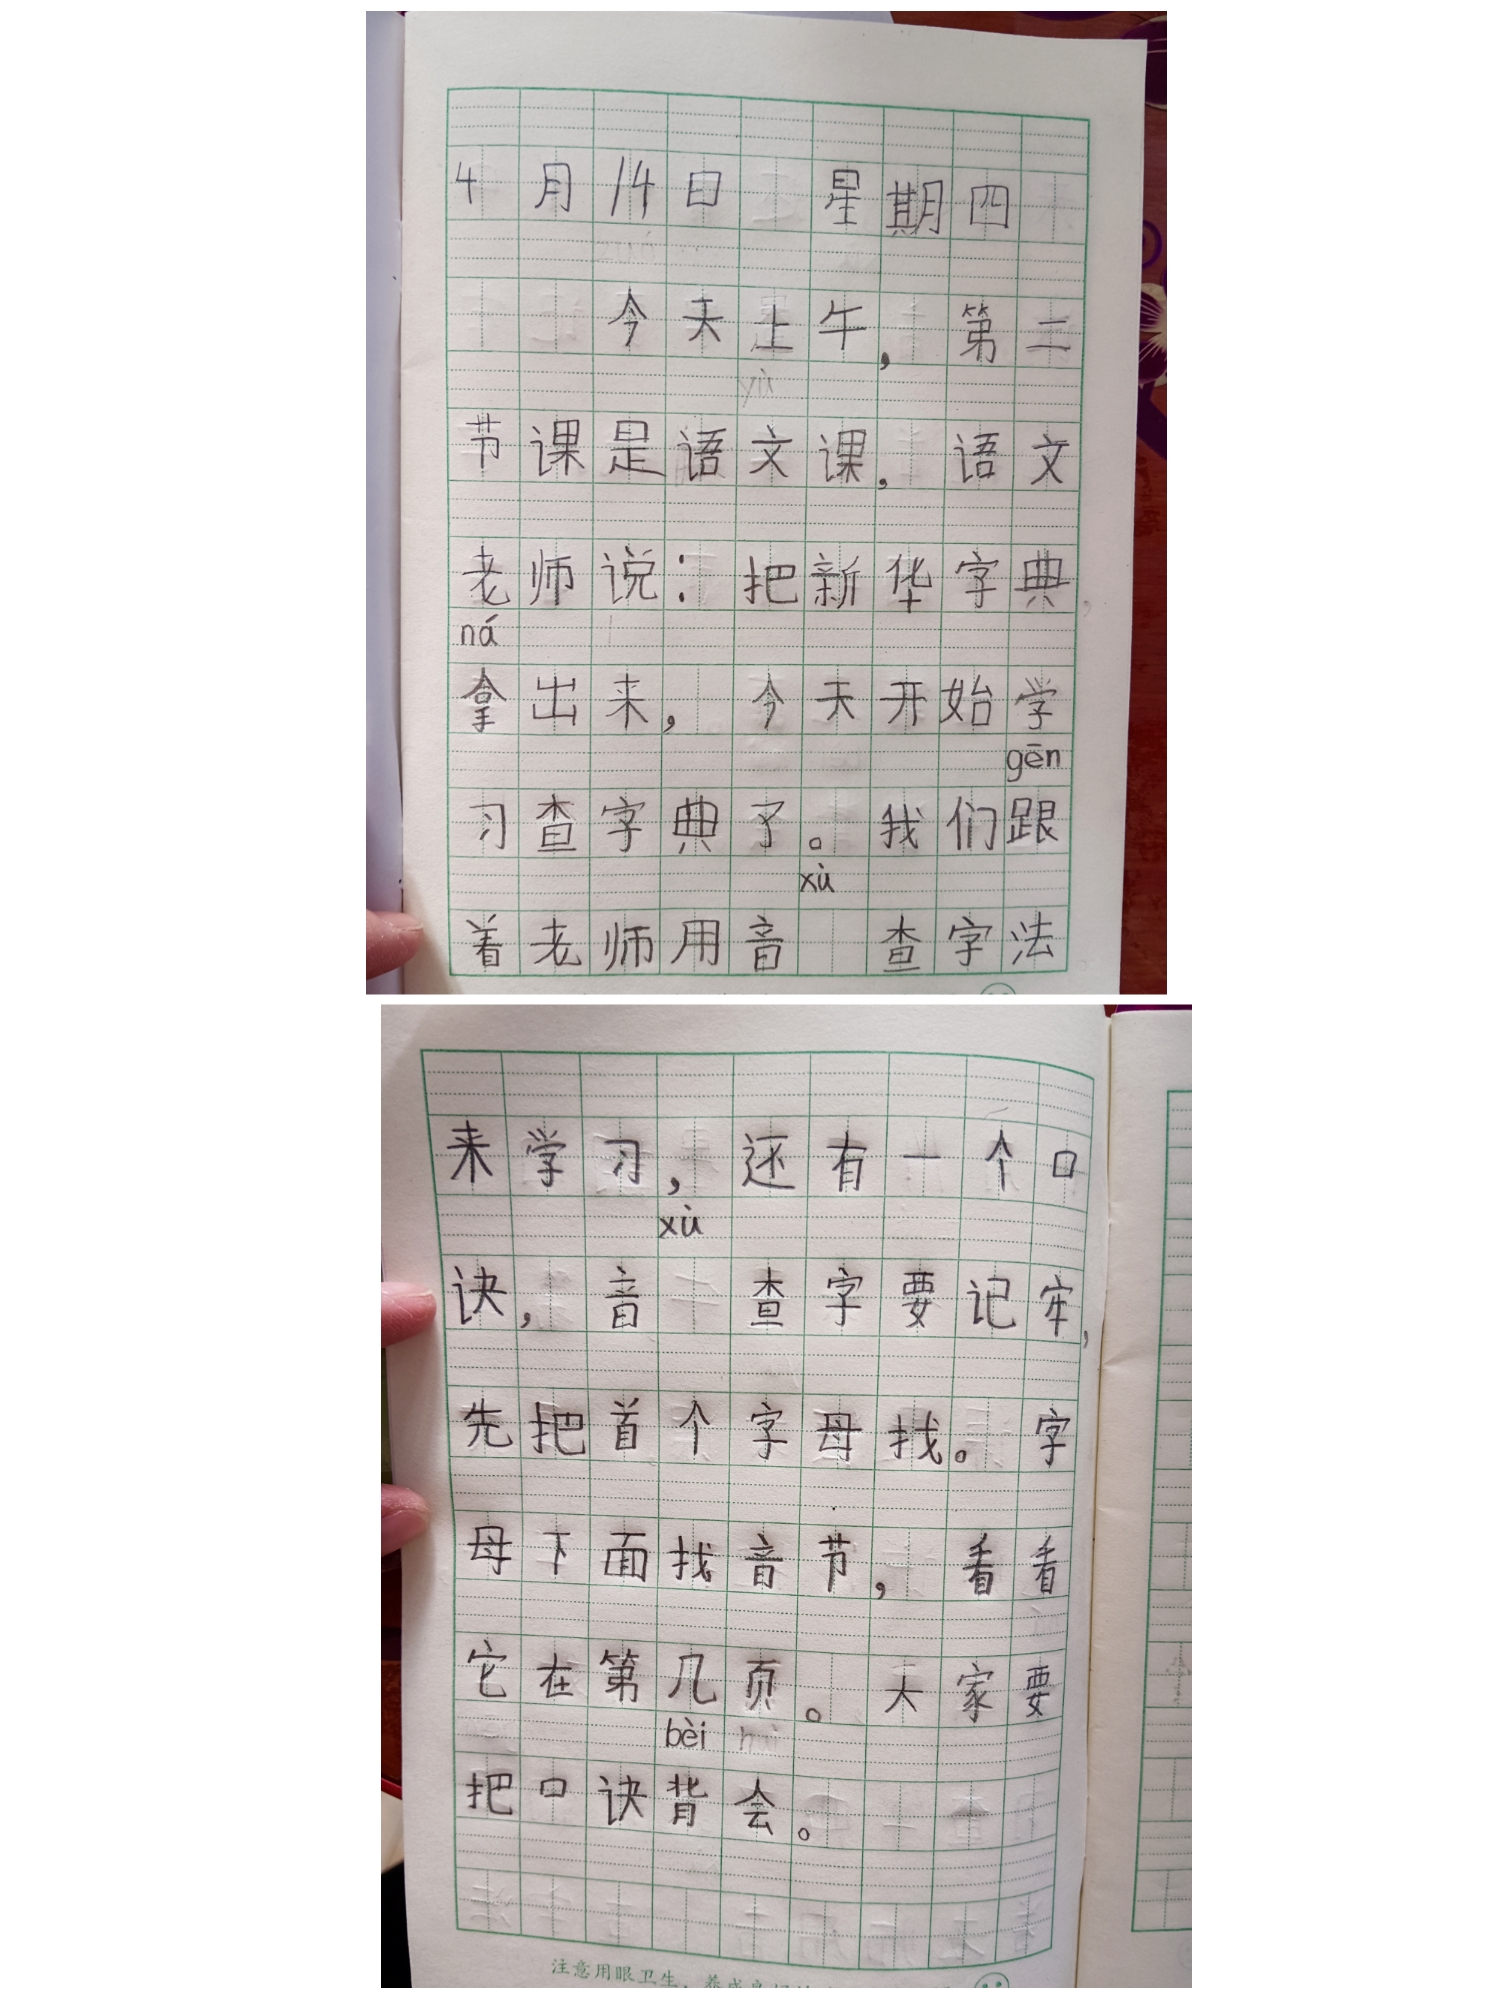 4月14日 星期四
今天上午,第二
yù
节课是语文课,语文
老师说:把新华字典,
ná
拿出来,今天开始学
gēn
习查字典了。我们跟
xù
着老师用音 查字法
来学习,还有一个口
xù
诀,音 查字要记牢,
先把首个字母找。字
母下面找音节,看看
它在第几页。大家要
bèi huì
把口诀背会。
注意用眼卫生,养成良好